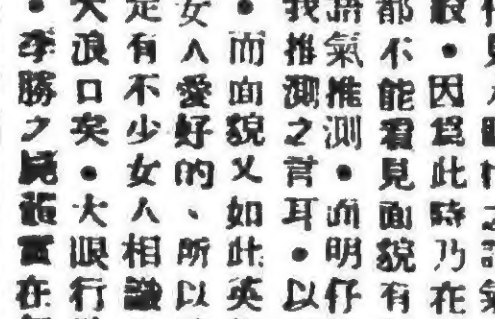 般●因為此時乃在
都不能看見面貌有
語氣推測●而明仔
我推測之言耳●以
●而面貌又如此英
女人愛好的、所以
是有不少女人相識
大浪口矣●大眼行
●李勝之屍體在